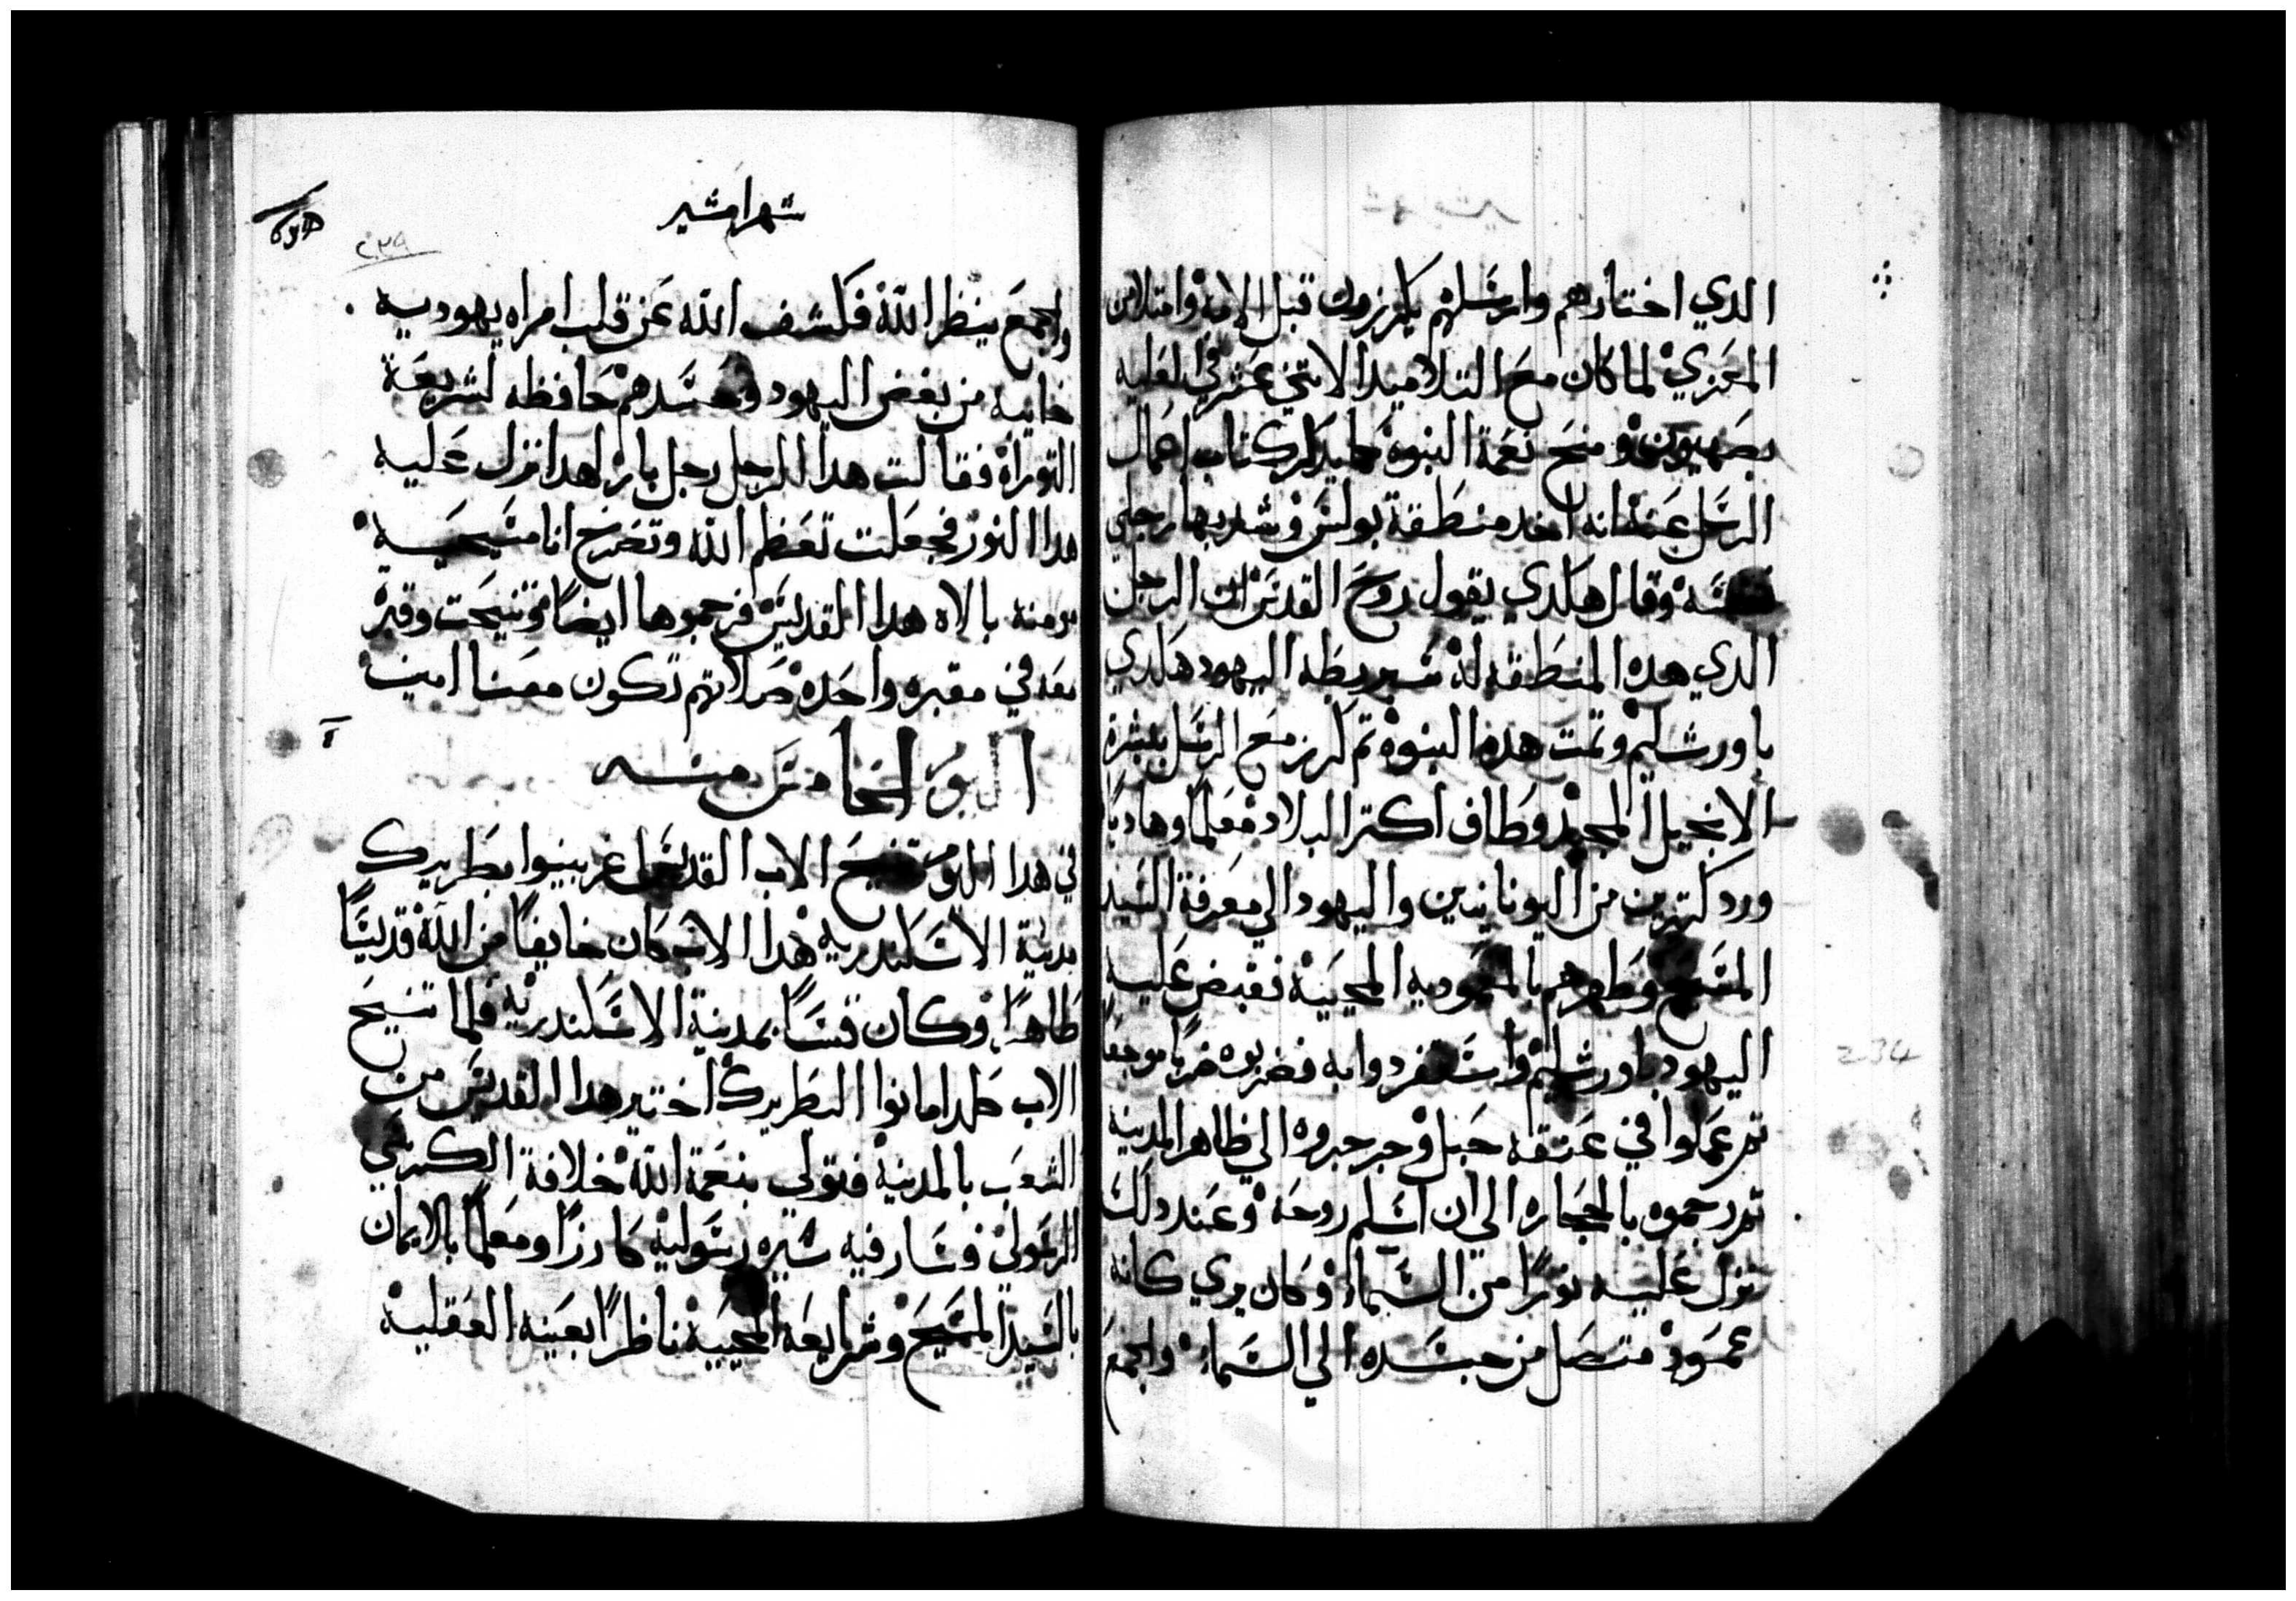 الدي اختارهم وارسلهم يكرزون قبل الامه وامتلا من
المعزي لما كان مع التلاميد الاتني عشر في العليه
بصهيون ومنح نعمة النبوه كتاب اعمال
الرسل عنه انه اخد منطقة بولس وشد بها رجلي
نفسه وقال هكدي يقول روح القدس ان الرجل
الدي هده المنطقه له سيربطه اليهود هكدي
باورشليم وتمت هده النبوه تم كرز مع الرسل ببشرة
الانجيل المجيد وطاف اكتر البلاد معلما وهاديا
ورد كتيرين من اليونانيين واليهود الي معرفة السيد
المسيح وطهرهم بالمعموديه المحييه فقبض عليه
اليهود باورشليم واستفردوا به فضربوه ضربا موجعا
تم عملوا في عنقه حبل وجرجروه الي ظاهر المدينه
تم رجموه بالحجاره الي ان اسلم روحه وعند دلك
نزل عليه نورا من السماء وكان يري كانه
عمود متصل من جسده الي السماء والجمع
شهر امشير
٢٣٩
والجمع ينظر الله فكشف الله عن قلب امراه يهوديه
خايبه من بغض اليهود وحسدهم حافظه لشريعة
التوراة فقالت هدا الرجل رجل بار لهدا نزل عليه
هدا النور فجعلت تعظم الله وتصرخ انا مسيحيه
مومنه بالاه هدا القديس فرجموها ايضا وتنيحت وقبر
معه في مقبره واحده صلاتهم تكون معنا امين
اليوم الخامس منه
في هدا اليوم تنيح الاب القديس اغربينوا بطريرك
مدينة الاسكندريه هدا الاب كان خايفا من الله قديسا
طاهرا وكان قسا بمدينة الاسكندريه فلما تنيح
الاب كلماديانوا البطريرك اختير هدا القديس من
الشعب بالمدينه فتولي بنعمة الله خلافة الكرسي
الرسولي وسار فيه سيره رسوليه كارزا ومعلما بالايمان
بالسيد المسيح وشرايعه المحييه ناظرا بعينه العقليه